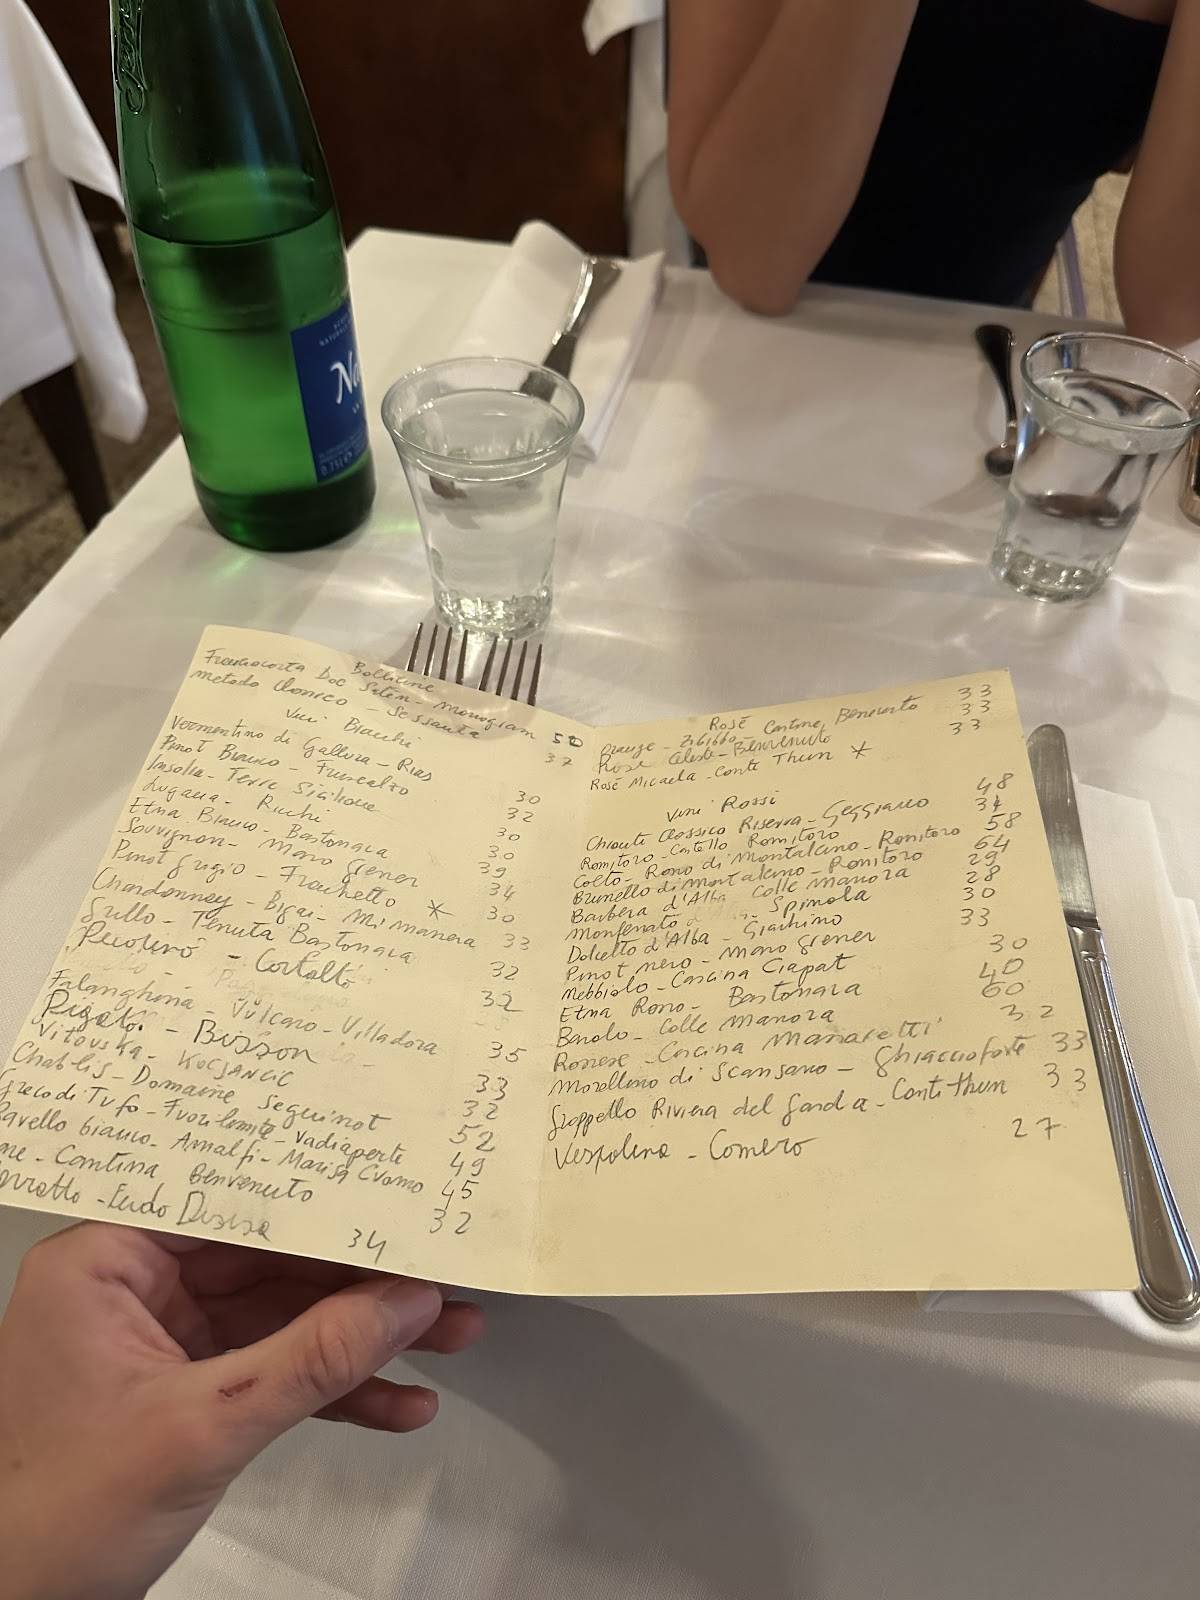 Bollicine
Franciacorta Doc Satèn - Monogram 50
metodo Classico - Sessanta 37
Vini Bianchi
Vermentino di Gallura - Rias 30
Pinot Bianco - Furcalzo 32
Insolia - Terre Siciliane 30
Lugana - Ricchi 30
Etna Bianco - Bastonaca 39
Souvignon - Moro Giener 34
Pinot Grigio - Frachetto * 30
Chardonnay - Bigai - Mi manera 33
Grillo - Tenuta Bastonaca 32
Pecorino - Cortalto 32
Falanghina - Vulcaro - Villadora 35
Pigato - Bisson 33
Vitouska - Kocjancic 32
Chablis - Domaine Seguinot 52
Greco di Tufo - Fuorilimite - Vadiaperte 49
Ravello bianco - Amalfi - Marisa Cuomo 45
- Cantina Benvenuto 32
- Feudo Disisa 34
Rosè
Orange - Zibibbo - Cantine Benvenuto 33
Rosè Celeste - Benvenuto 33
Rosè Micaela - Conte Thun * 33
Vini Rossi
Chianti Classico Riserva - Geggiano 48
Romitoro - Castello Romitoro 34
Colto - Rosso di Montalcino - Romitoro 58
Brunello di Montalcino - Romitoro 64
Barbera d'Alba Colle Manora 29
Monferrato - Spinola 28
Dolcetto d'Alba - Giachino 30
Pinot nero - Moro Giener 33
Nebbiolo - Cascina Ciapat 30
Etna Rosso - Bastonaca 40
Barolo - Colle Manora 60
Rossese - Cascina Manaretti 32
Morellino di Scansano - Ghiaccioforte 33
Groppello Riviera del Garda - Conti Thun 33
Vespolina - Comero 27
0.75l